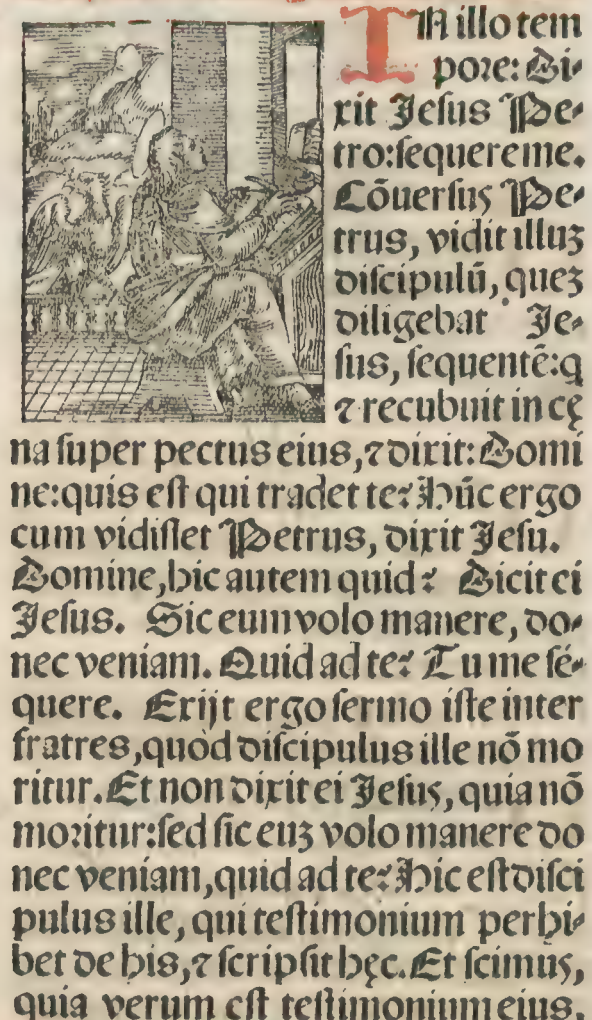 IN illo tem
pore: Di-
xit Jesus Pe-
tro:sequere me.
Cōuersus Pe-
trus, vidit illuʒ
discipulū, queʒ
diligebat Je-
sus, sequentē:q
⁊ recubuit in cę
na super pectus eius,⁊ dixit: Domi
ne:quis est qui tradet te? Hūc ergo
cum vidisset Petrus, dixit Jesu.
Domine, hic autem quid? Dicit ei
Jesus. Sic eum volo manere, do-
nec veniam. Quid ad te? Tu me sé-
quere. Exijt ergo sermo iste inter
fratres, quòd discipulus ille nō mo
ritur. Et non dixit ei Jesus, quia nō
moritur:sed sic euʒ volo manere do
nec veniam, quid ad te? Hic est disci
pulus ille, qui testimonium perhi-
bet de his,⁊ scripsit hęc. Et scimus,
quia verum est testimonium eius.